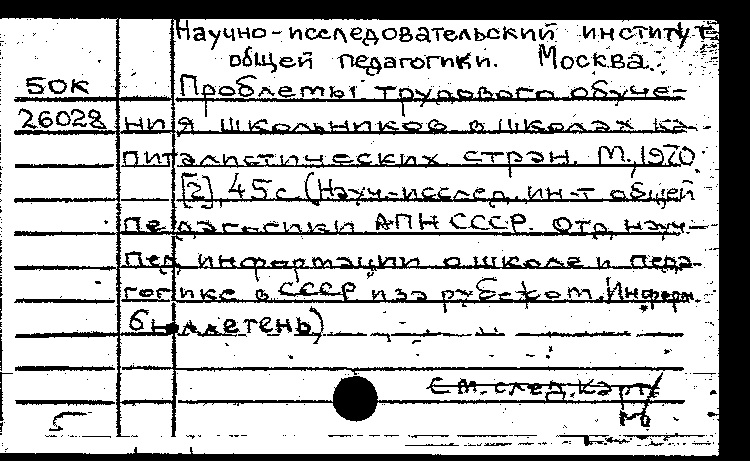 Научно-исследовательский институт
общей педагогики. Москва.
БОК
Проблемы трудового обуче-
26028
ния школьников в школах ка-
питалистических стран. М., 1970.
[2], 45 с. (Науч.-исслед. ин-т общей
педагогики АПН СССР. Отд. науч.-
пед. информации о школе и педа-
гогике в СССР и за рубежом. Информ.
бюллетень)
См. след. карт.
5